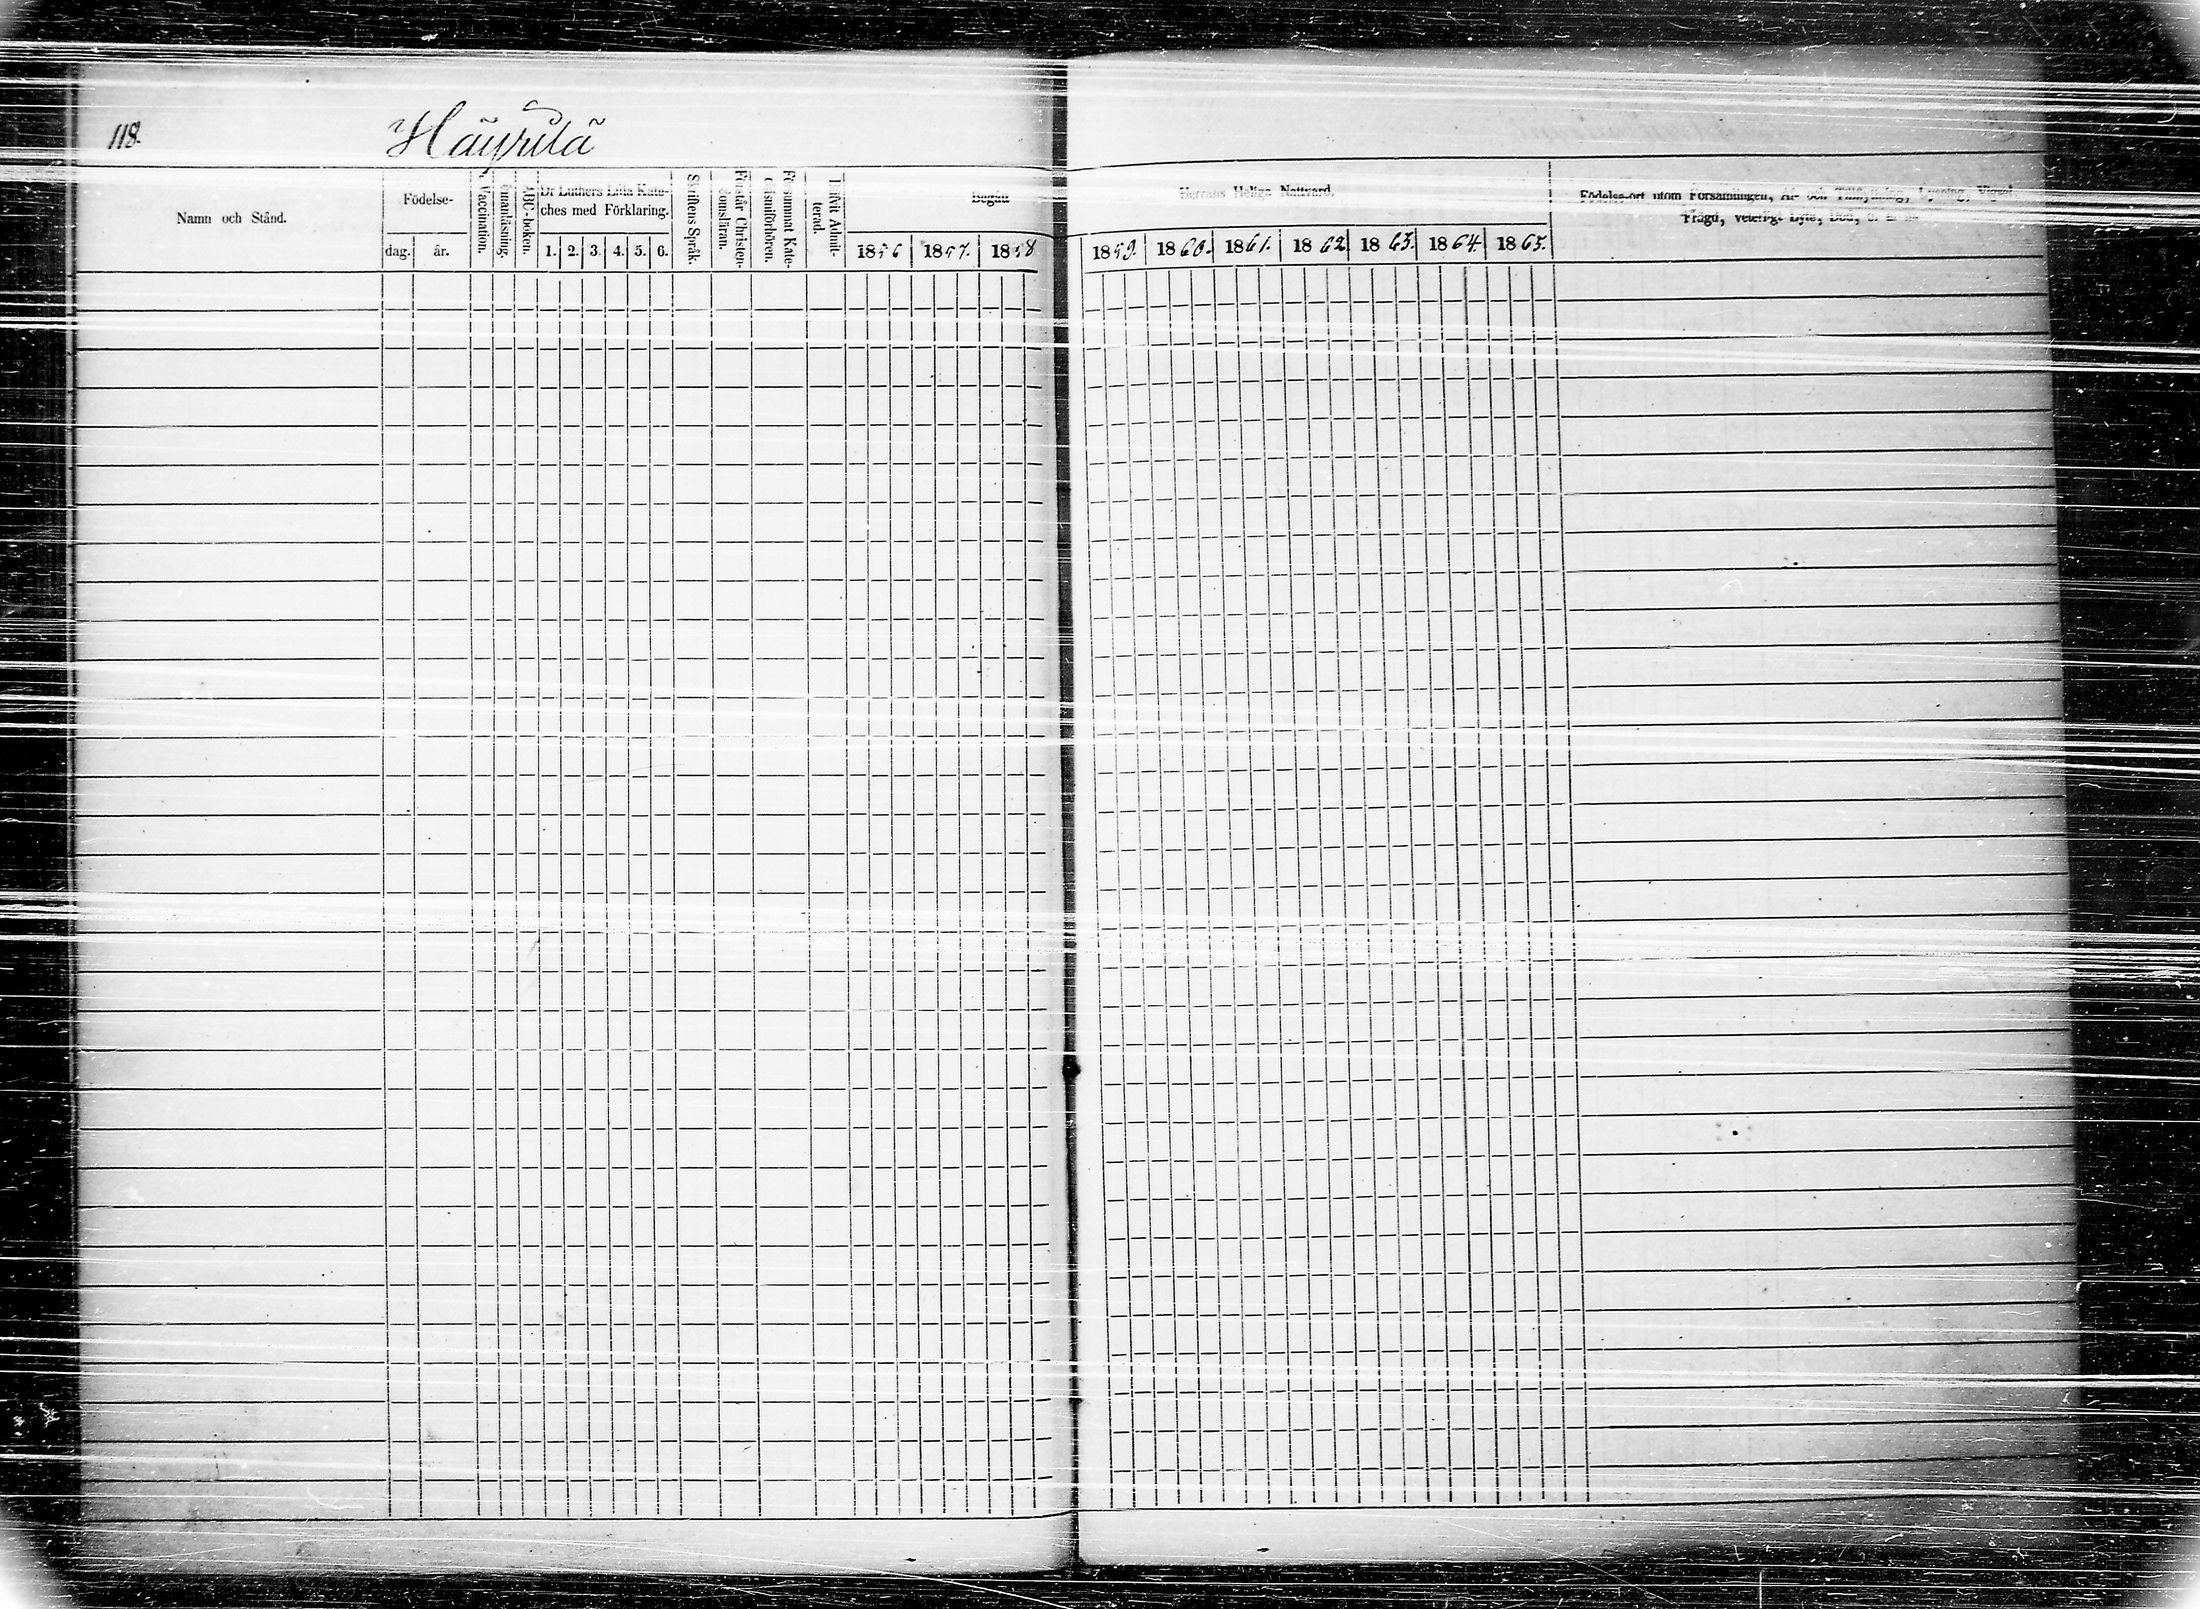 118.
Häyrilä
Namn och Stånd.
Födelse-
dag. år.
Vaccination.
Innanläsning.
ABC-boken.
Dr Luthers Lilla Kate-
ches med Förklaring.
1. 2. 3. 4. 5. 6.
Skriftens Språk.
Förstår Christen-
domsläran.
Försummat Kate-
chismiförhören.
Blifvit Admit-
terad.
Begått
1856 1857. 1858
Herrans Heliga Nattvard.
1859. 1860. 1861. 1862 1863. 1864. 1865.
Födelse-ort utom Församlingen, Af- och Tillflyttning, Lysning, Vigsel,
Frägd, Veterligt Lyte, Död, &c.